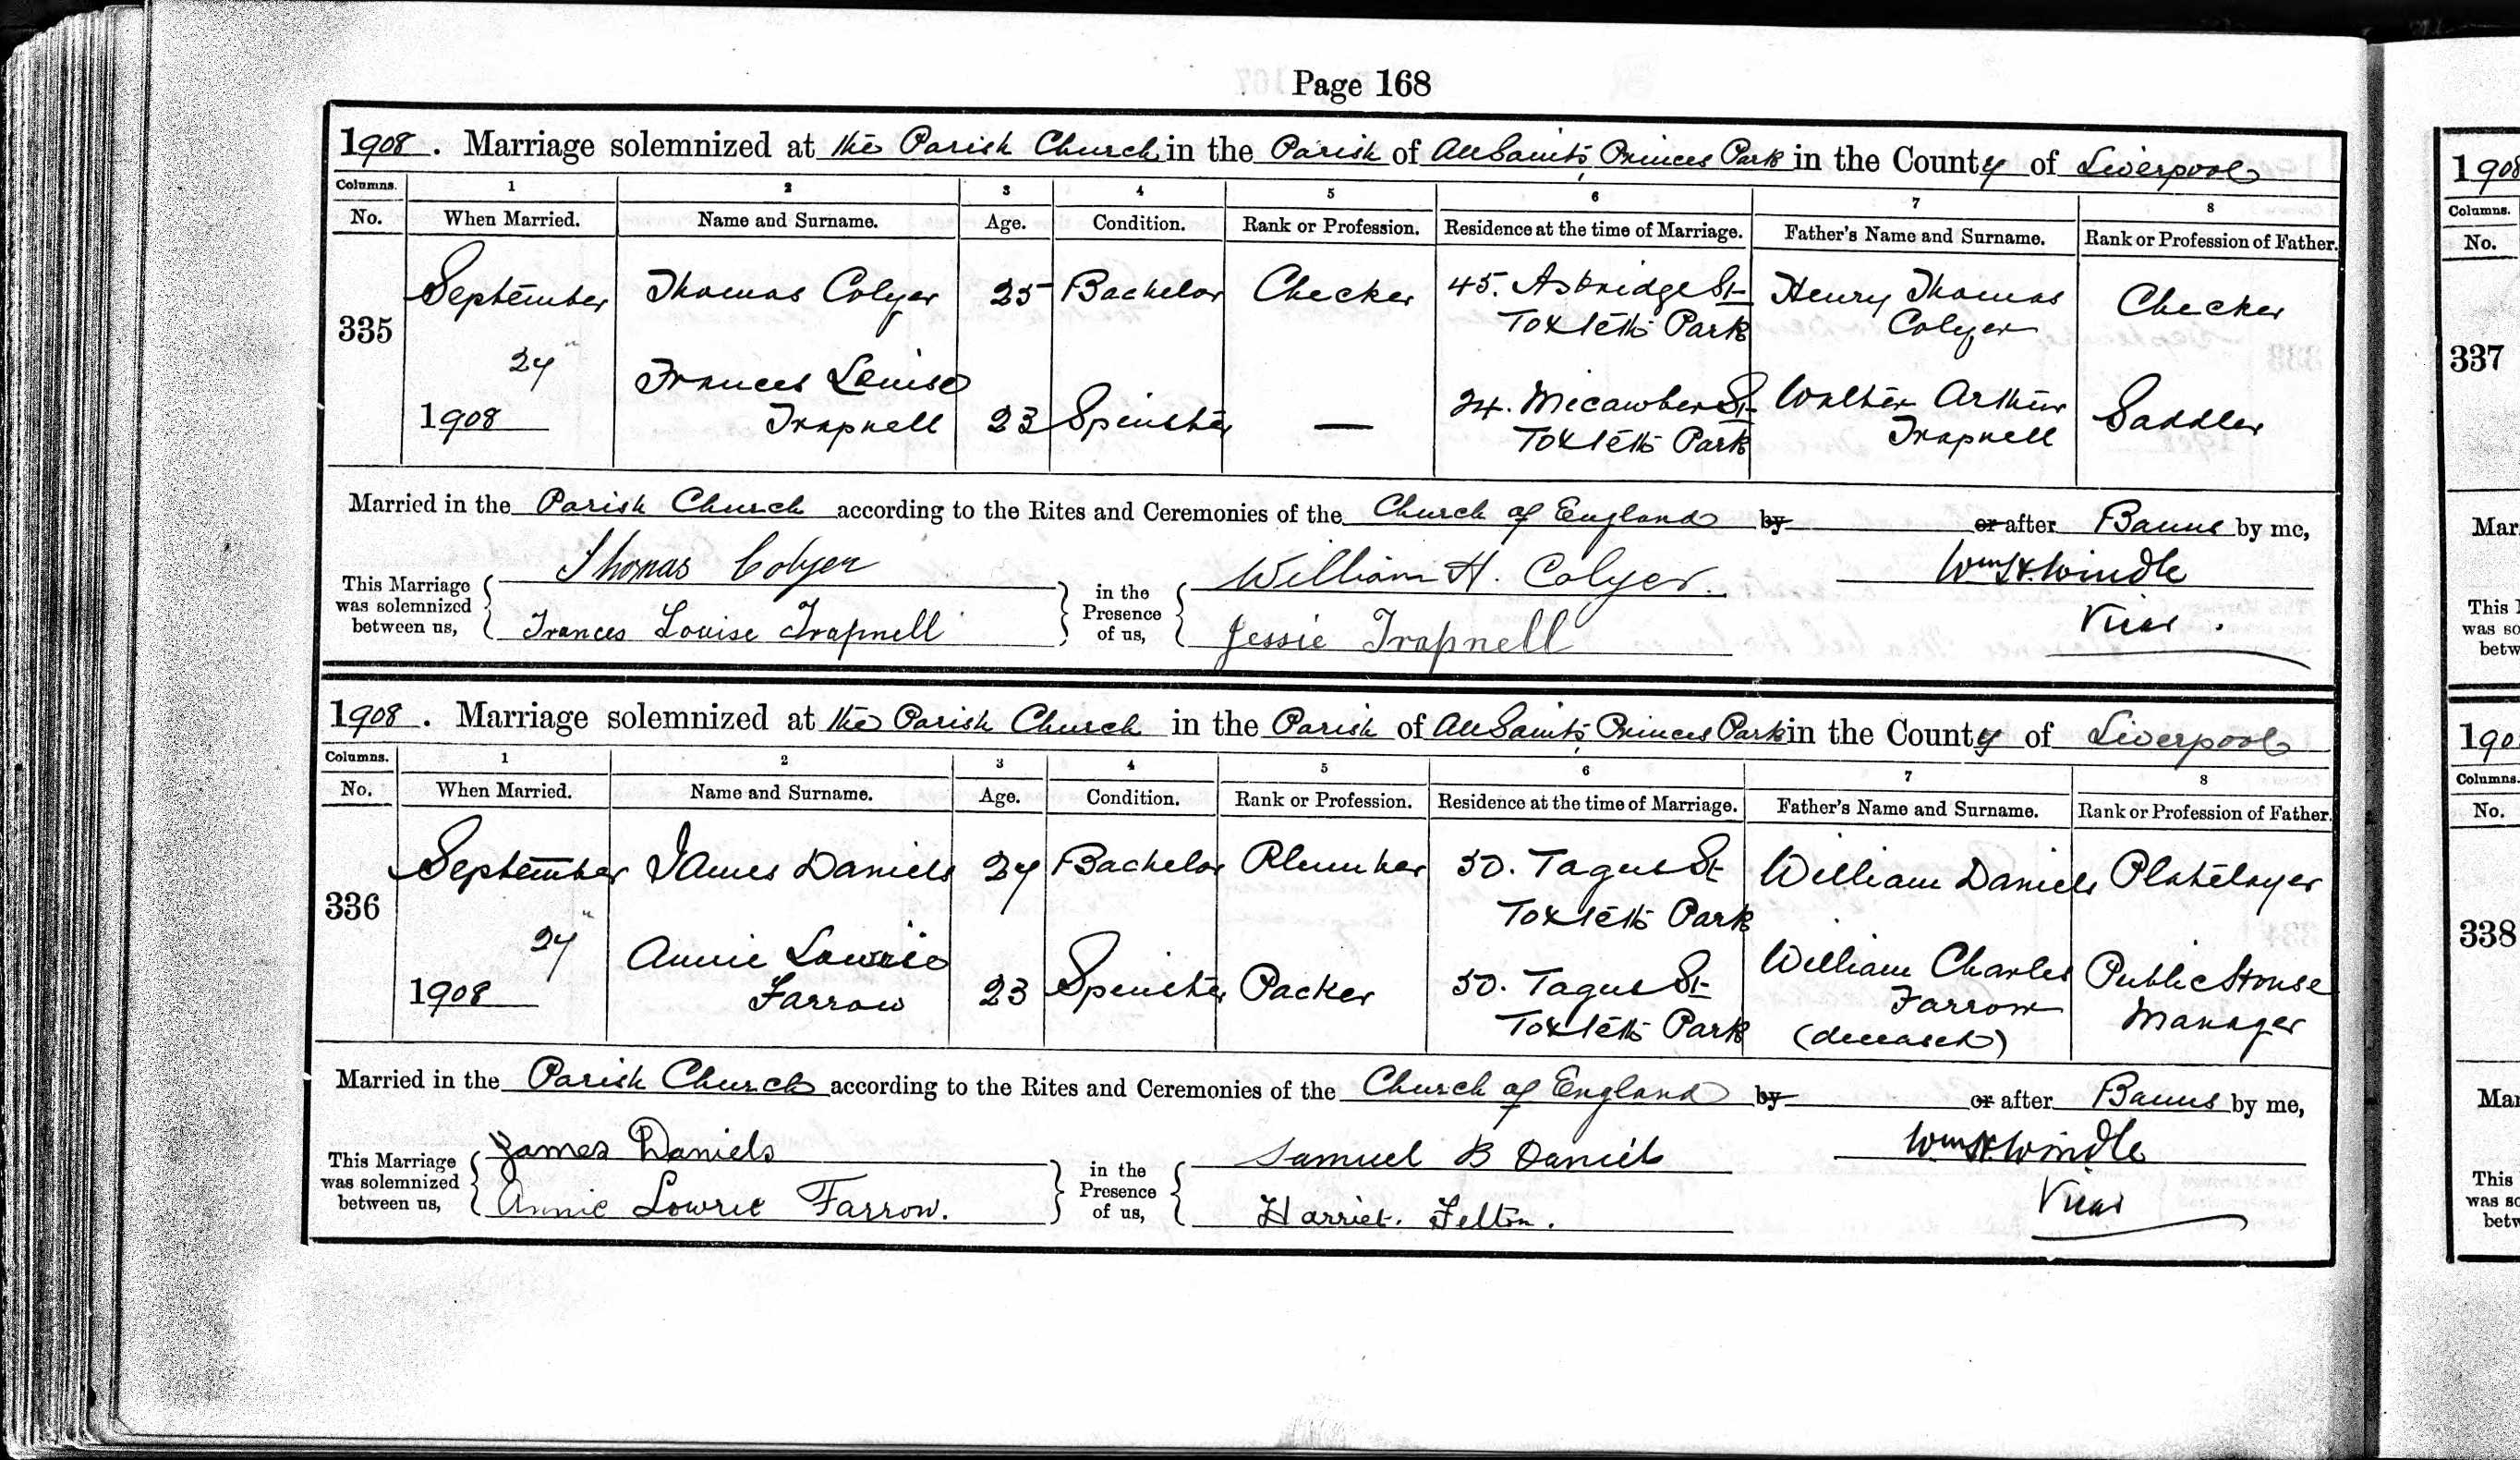 Page 168
1908. Marriage solemnized at the Parish Church in the Parish of All Saints, Princes Park in the County of Liverpool
Columns. 1 2 3 4 5 6 7 8
No. When Married. Name and Surname. Age. Condition. Rank or Profession. Residence at the time of Marriage. Father's Name and Surname. Rank or Profession of Father.
335 September Thomas Colyer 25 Bachelor Checker 45. Asbridge St Henry Thomas Checker
Toxteth Park Colyer
27" Frances Louise 24. Micawber St Walter Arthur
1908 Trapnell 23 Spinster — Toxteth Park Trapnell Saddler
Married in the Parish Church according to the Rites and Ceremonies of the Church of England by or after Banns by me,
This Marriage was solemnized between us, Thomas Colyer in the Presence of us, William H. Colyer. Wm H. Windle
Frances Louise Trapnell Jessie Trapnell Vicar.
1908. Marriage solemnized at the Parish Church in the Parish of All Saints, Princes Park in the County of Liverpool
Columns. 1 2 3 4 5 6 7 8
No. When Married. Name and Surname. Age. Condition. Rank or Profession. Residence at the time of Marriage. Father's Name and Surname. Rank or Profession of Father.
336 September James Daniels 27 Bachelor Plumber 50. Tagus St William Daniels Platelayer
Toxteth Park
27" Annie Lowrie 50. Tagus St William Charles Public House
1908 Farrow 23 Spinster Packer Toxteth Park Farrow Manager
(deceased)
Married in the Parish Church according to the Rites and Ceremonies of the Church of England by or after Banns by me,
This Marriage was solemnized between us, James Daniels in the Presence of us, Samuel B Daniels Wm H. Windle
Annie Lowrie Farrow. Harriet. Felton. Vicar
1908
Columns.
No.
337
Mar
This
was so
betw
190
Columns.
No.
338
Mar
This
was so
betw